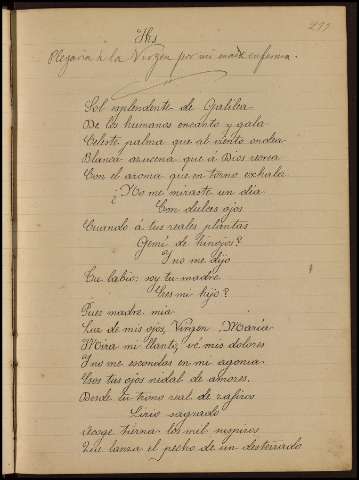 Jhs
Plegaria á la Virgen por mi madre enferma.
Sol esplendente de Galilea
De los humanos encanto y gala
Celeste palma que al viento ondea
Blanca azucena que á Dios recrea
Con el aroma que en torno exhala
¿No me miraste un dia
Con dulces ojos
Cuando á tus reales plantas
Gemí de hinojos?
Y no me dijo
Tu labio: soy tu madre
Eres mi hijo?
Pues madre mia
Luz de mis ojos, Virgen María
Mira mi llanto, vé mis dolores
Y no me escondas en mi agonia
Esos tus ojos nidal de amores.
Desde tu trono real de zafiros
Lirio sagrado
Acoge tierna los mil suspiros
Que lanza el pecho de un desterrado